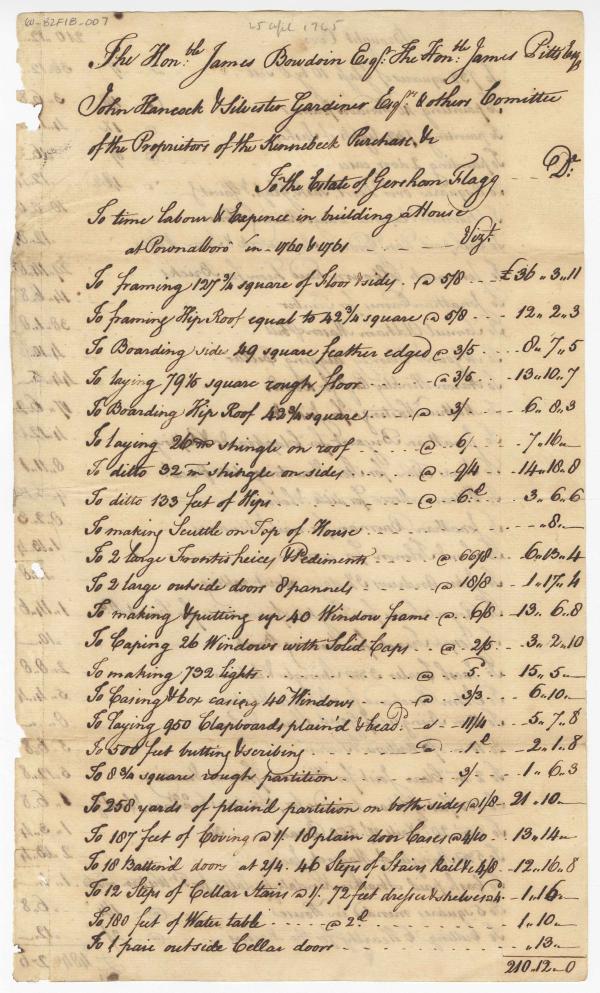 W-B2F1B-007
25 April 1765
The Hon.ble James Bowdoin Esqr. The Hon.ble James Pitts Esqr
John Hancock & Silvester Gardiner Esqrs & others Comittee
of the Proprietors of the Kennebeck Purchase &c
To the Estate of Gersham Flagg Dr.
To time Labour & Expence in building a House
at Pownalboro' in 1760 & 1761 - - - - - Vizt.
To framing 127 3/4 square of floor & sides. @ 5/8 - - - £36 .. 3 .. 11
To framing Hip Roof equal to 42 3/4 square @ 5/8 - - 12 .. 2 .. 3
To Boarding side 49 square feather edged @ 3/5 - - - 8 .. 7 .. 5
To laying 79 1/3 square rough floor - - - - @ 3/5 - - 13 .. 10 .. 7
To Boarding Hip Roof 42 3/4 square - - - @ 3/ - - - 6 .. 8 .. 3
To laying 26 m shingle on roof - - - - @ 6/ - - - 7 .. 16 ..
To ditto 32 m shingle on sides - - - - @ 9/4 - - - 14 .. 18 .. 8
To ditto 133 feet of Hips - - - - @ 6d - - - 3 .. 6 .. 6
To making Scuttle on Top of House - - - - - .. 8 ..
To 2 large Frontispeices & Pediments - - @ 66/8 - - 6 .. 13 .. 4
To 2 large outside doors 8 pannels - - - @ 18/8 - - 1 .. 17 .. 4
To making & putting up 40 Window frame @ 6/8 - - 13 .. 6 .. 8
To Caping 26 Windows with Solid Caps - - @ 2/5 - - 3 .. 2 .. 10
To making 732 lights - - - - @ 5d - - 15 .. 5 ..
To Casing & box casing 40 Windows - - - @ 3/3 - - 6 .. 10 ..
To laying 950 Clapboards plain'd & bead'd @ 11/4 - - 5 .. 7 .. 8
To 500 feet butting & scribing - - - @ 1d - - 2 .. 1 .. 8
To 8 3/4 square rough partition - - - 3/ - - 1 .. 6 .. 3
To 258 yards of plain'd partition on both sides @ 1/8 - 21 .. 10 ..
To 187 feet of Coving @ 1/. 18 plain door Cases @ 4/10 - - 13 .. 14 ..
To 18 Batten'd doors at 2/4. 46 Steps of Stairs Rail &c 4/8 - 12 .. 16 .. 8
To 12 Steps of Cellar Stairs @ 1/. 72 feet dresser & shelves @ 4 - 1 .. 16 ..
To 180 feet of Water table - - - - @ 2d - - - 1 .. 10 ..
To 1 pair outside Cellar doors - - - - .. 13 ..
210 .. 12 .. 0